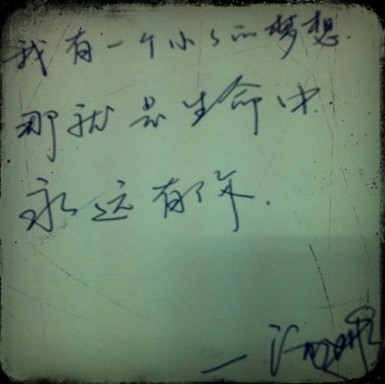 我有一个小小的梦想.
那就是生命中
永远有你.